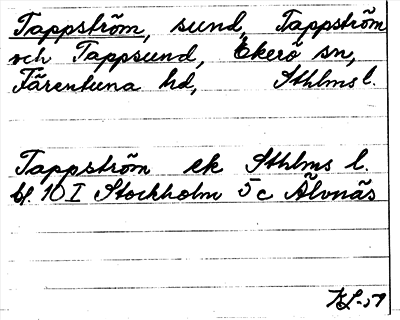 Tappström, sund, Tappström
och Tappsund, Ekerö sn,
Färentuna hd, Sthlms l.
Tappström ek Sthlms l.
bl. 10 I Stockholm 5 c Älvnäs
KL-51